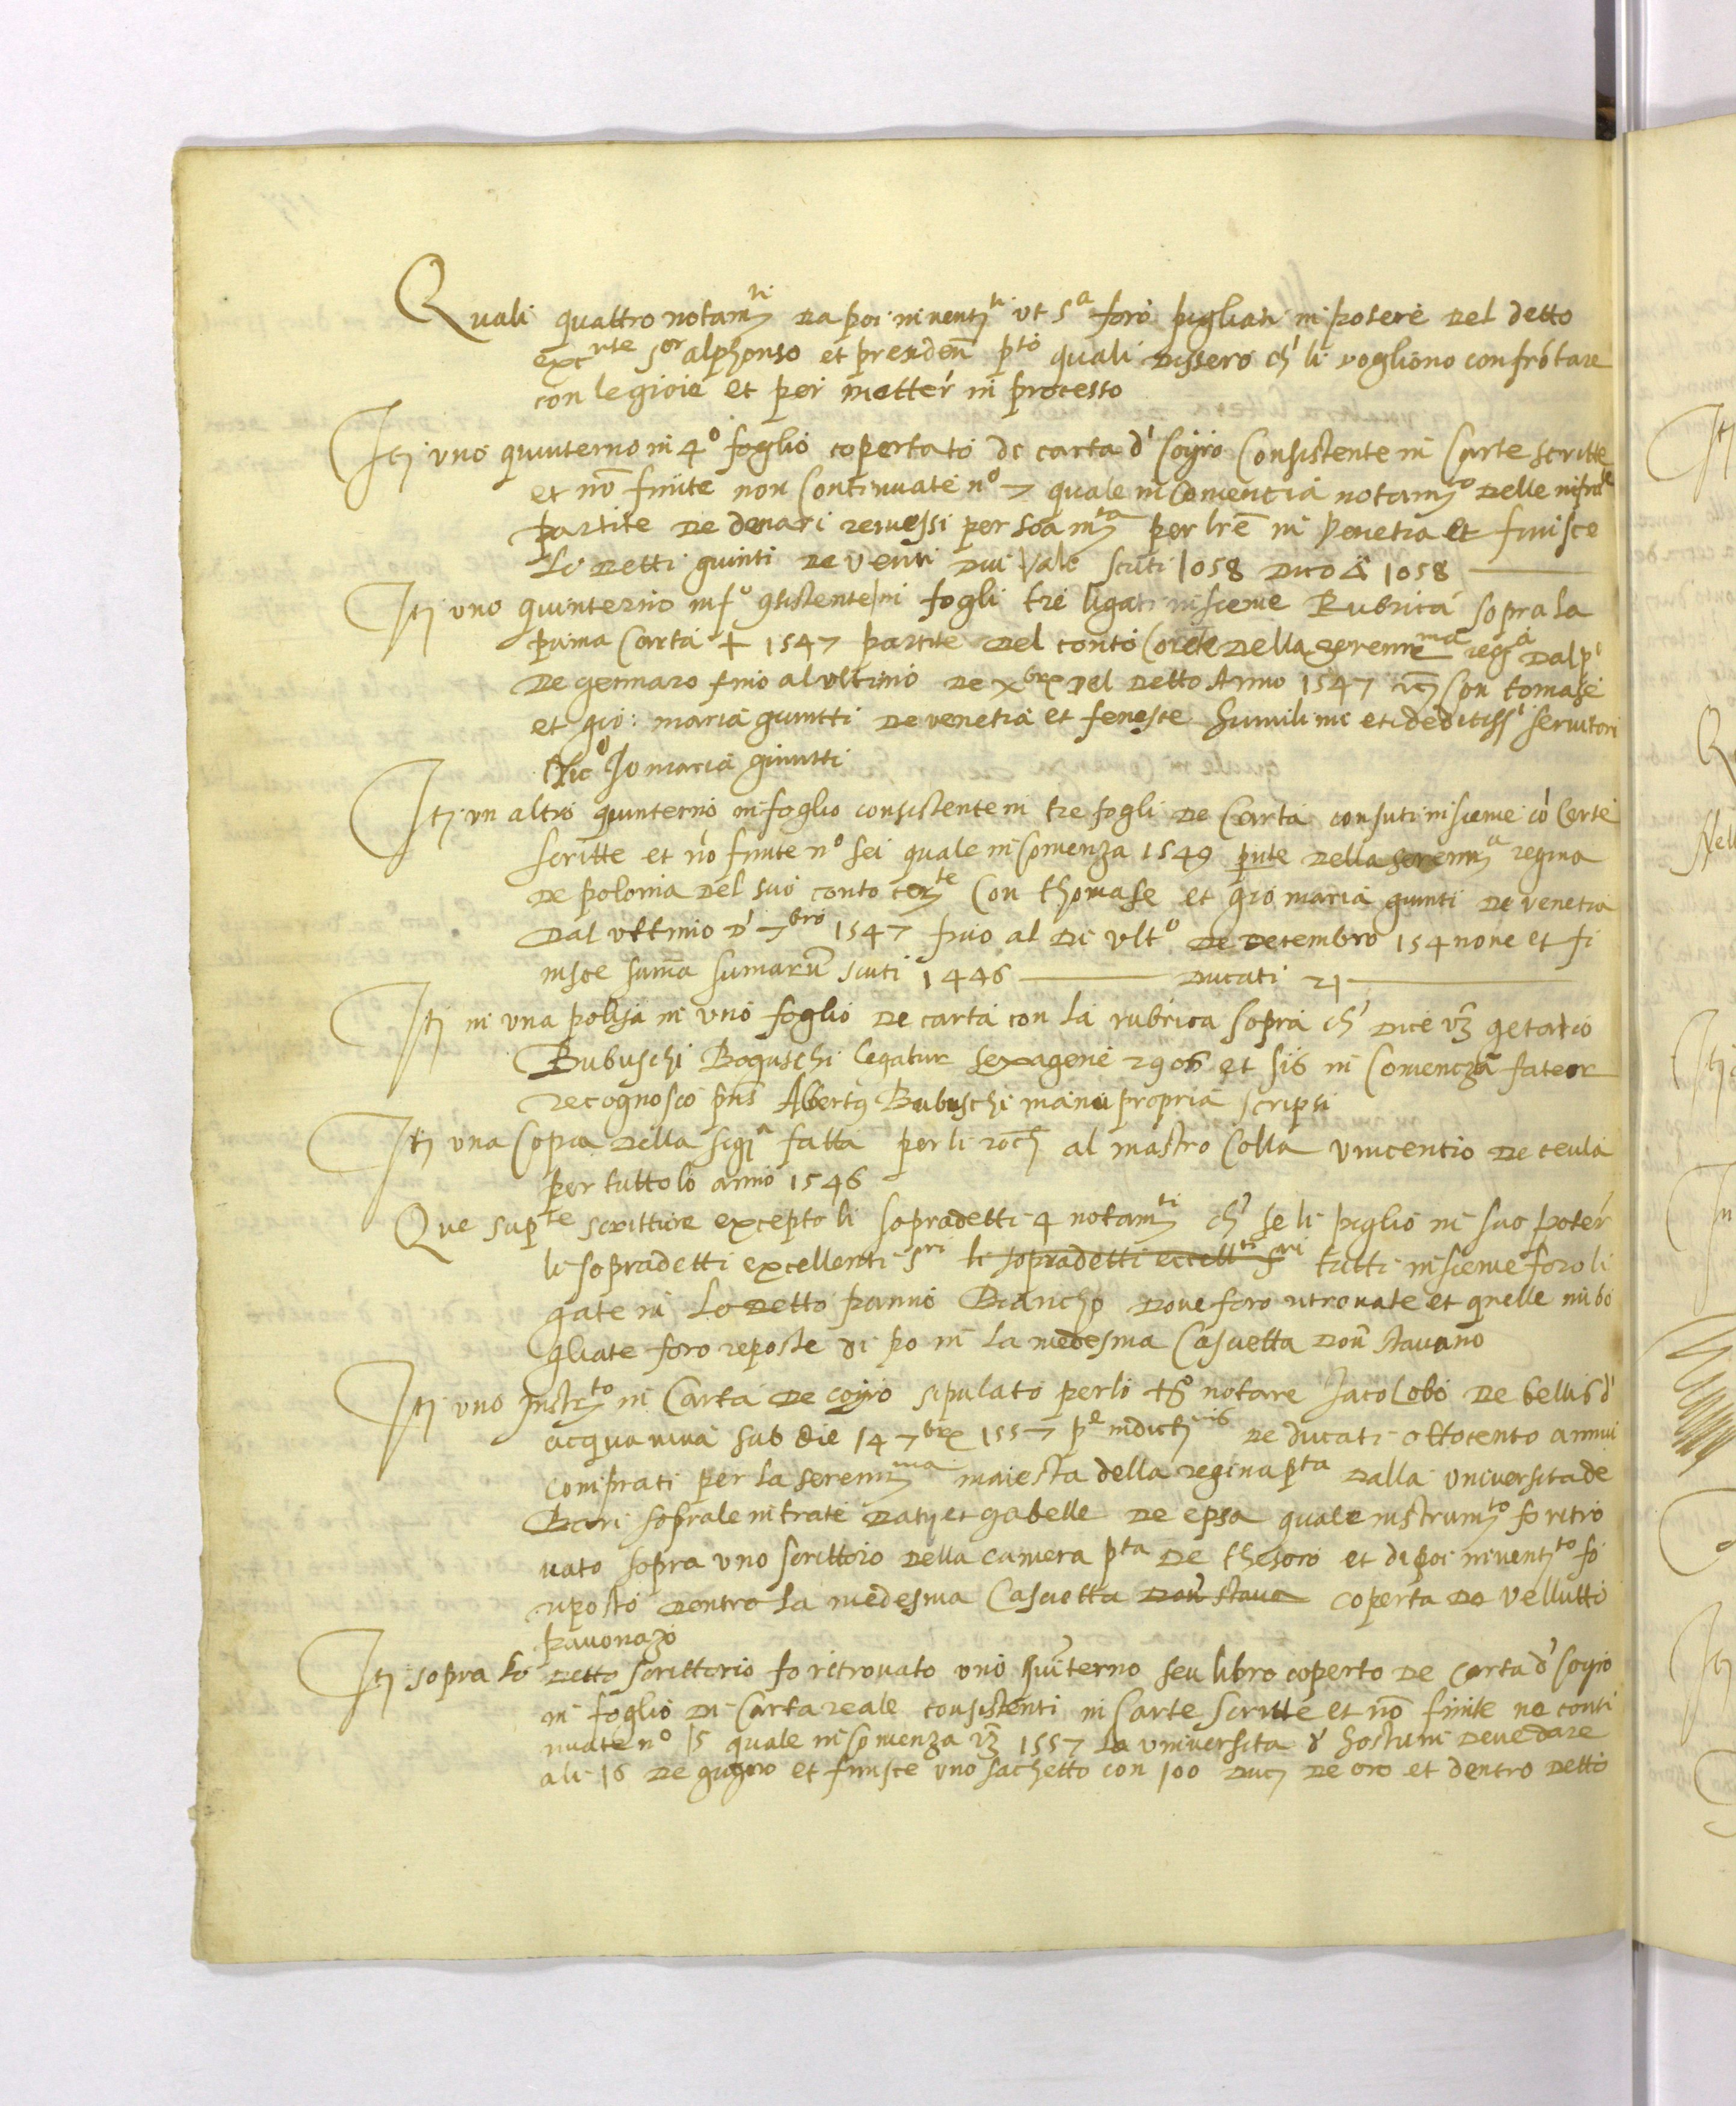 Quali quattro notam.ti da poi inventi ut s.a foro pigliati in potere del detto
exc.nte s.or alphonso et presiden pto quali dissero ch' li vogliono confrotare
con le gioie et poi metter in processo
Itj uno quinterno in 4º foglio copertato de carta d' coyro Consistente in Carte scritte
et nō finite non continuate nº 7 quale in comencia notam.to delle infra.te
partite de denari remessi per soa m.ta per lre in venetia et finisce
Lo detti giunti de venti dui vale scuti 1058 dico Δ 1058
Itj uno quinterno inf.o gsistente in fogli tre ligati insieme Rubrica sopra la
prima Carta + 1547 partite del conto Corēte della serenne.ma reg.a dal p'
de gennaro fino al ultimo de x.brx del detto Anno 1547 con tomase
et gio: maria giuntti de venetia et feneste humilime et dedetiss.i servitori
Jo maria giuntti
Itj un altro quinterno in foglio consistente in tre fogli de Carta consuti insieme cō Carte
scritte et nō finite nº sei quale in comenza 1549 pnte della serenis.a regina
de polonia del suo conto cor.te Con thomase et gio maria giunti de venetia
dal ultimo d' 7.bro 1547 fino al di ult.o de decembro 154none et fi
nisce suma sumarū scuti 1446 ducati 21
Itj in una polisa in uno foglio de carta con la rubrica sopra ch' dice vz getatio
Bubuschi Boguschi legatur sexagene 2906 et sis in Comenczā fateor
recognosco pns Albertg Bubuschi manu propria scripsi
Itj una Copia della sig.a fatta per li roch al mastro Colla vincentio de ceula
per tutto lo anno 1546
Que sup.te scritture excepto li sopradetti 4 notam.ti ch' se li piglio in suo poter
li sopradetti excellenti s.ri li sopradetti eccell.ti s.ri tutti insieme foro li
gate in Lo detto panno Biancho dove foro ritrovate et quelle inbo
gliate foro reposte di po in la medesma Casuetta dou' stavano
Itj uno Instr.to in Carta de coyro stipulato per lo not.re Jacolobo de bellis d'
acqua viva sub die 14 7.brx 1557 p.e indict.nis de ducati ottocento annui
comprati per la serenis.ma maiesta della regina p.ta dalla universita de
Bari sopra le intrate daty et gabelle de epsa quale instrum.to fo ritro
vato sopra uno scrittoio della camera p.ta de thesoro et di poi invent.to fo
riposto dentro la medesma Casuetta dou' stava coperta de vellutto
pavonazo
Itj sopra lo detto scrittorio fo ritrovato uno quīterno seu libro coperto de carta d' coyro
in foglio di Carta reale consistenti in Carte scritte et nō finite ne conti
nuate nº 15 quale in comenza vz 1557 la universita d' hostuni deve dare
ali 16 de giugno et finisce uno sachetto con 100 duc. de oro et dentro detto